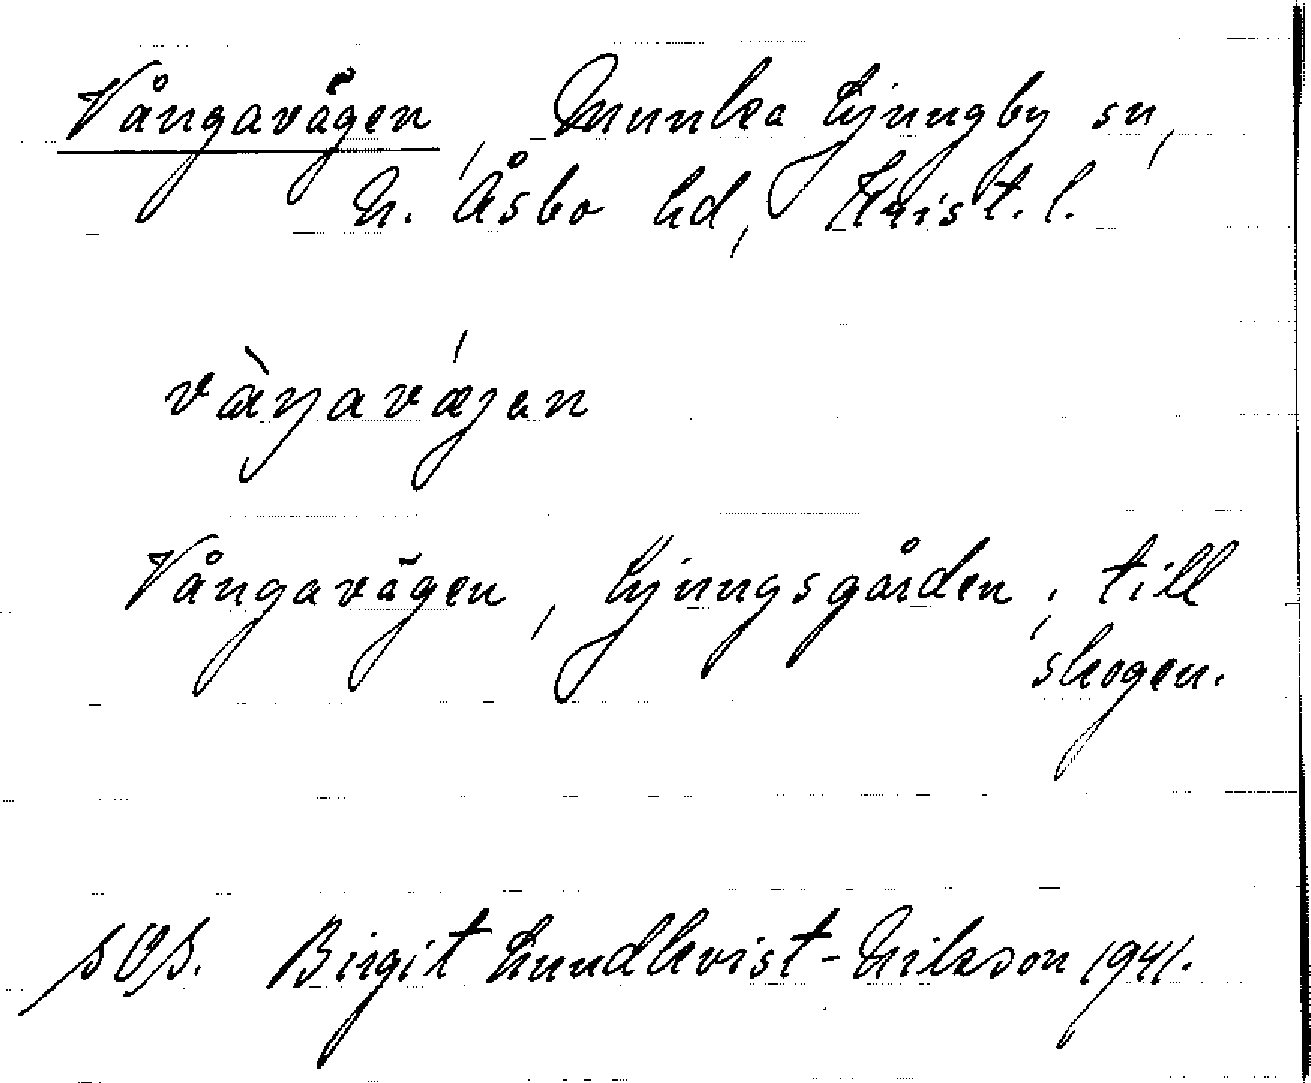 Vångavägen, Munka Ljungby sn,
N. Åsbo hd, Krist. l.
vàŋavǽjen
Vångavägen, Ljungsgården; till
skogen.
Birgit Lundkvist-Nilsson 1941.